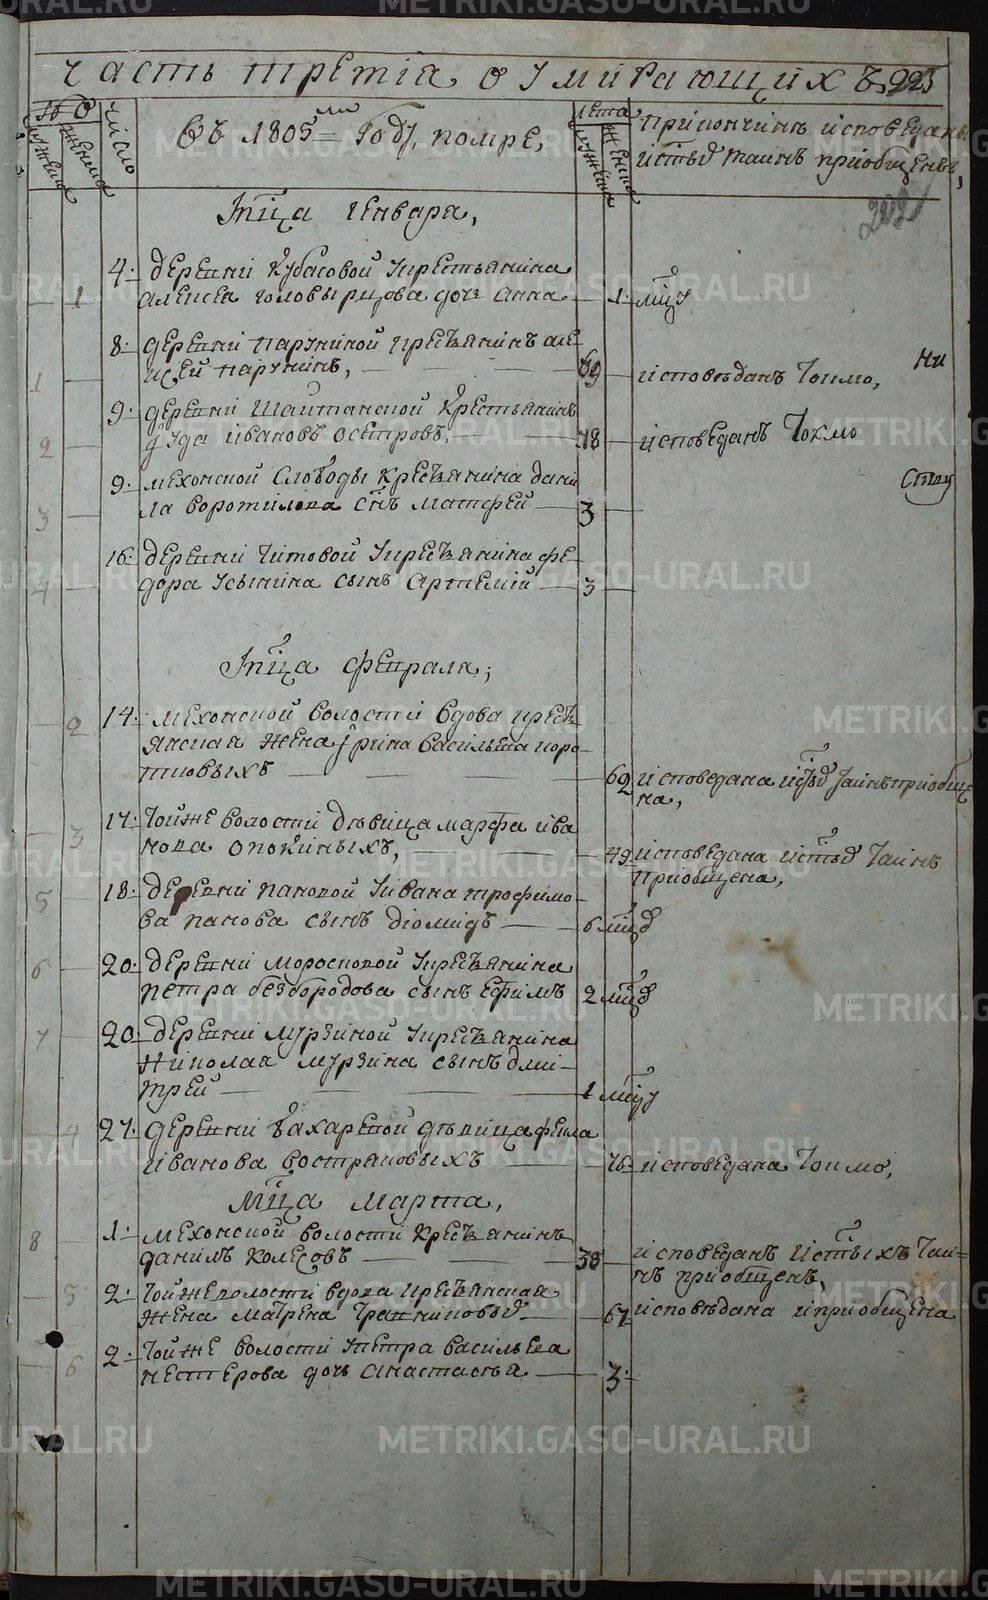 Часть третiа о умирающихъ 223
№
мужеска
женска
число
Въ 1805 ми Году, помре,
лета
мужеска
женска
При кончинѣ исповеданы
и стыхъ таинъ приобщены,
202
Мца генваря,
1 4. деревни Кубасовой у крестьянина
Алексея Головырцова дочь Анна 1. мцу
1 8. деревни Паруниной крестьянинъ Але
ксей Парунинъ, 69 исповѣданъ токмо,
Ни
2 9. деревни Шайтанской крестьянинъ
Iуда Ивановъ Осетровъ, 78 исповеданъ токмо
3 9. Мехонской слободы крестьянина Дани
ла Воротилова снъ Матфей 3
4 16. деревни Титовой у крестьянина Фе-
дора Усынина сынъ Артемiй 3
Мца февраля;
2 14. Мехонской волости вдова кресть
янская жена Iрина Васильева Коро-
тковыхъ 62 исповедана и стыхъ таинъ приобще
на,
3 17. той же волости дѣвица Марфа Ива
нова Опокиныхъ, 49. исповедана и стыхъ таинъ
приобщена,
5 18. деревни Пановой у Ивана Трофимо-
ва Панова сынъ Дiомидъ 6 мцъ
6 20. деревни Морсковой у крестьянина
Петра Безбородова сынъ Ефимъ 2 мцъ
7 20. деревни Мурзиной у крестьянина
Николая Мурзина сынъ Дми-
трей 1 мцу
4 27. деревни Бахаревой дѣвица Фекла
Иванова Востряковыхъ 76. исповедана токмо,
Мца марта,
8 1. Мехонской волости крестьянинъ
Данилъ Колесовъ 38 исповеданъ и стыхъ таи-
нъ приобщенъ,
5 2. той же волости вдова крестьянская
жена Матрена 67 исповѣдана и приобщена
6 2. той же волости у Петра Васильева
Нестерова дочь Анастасья 3.